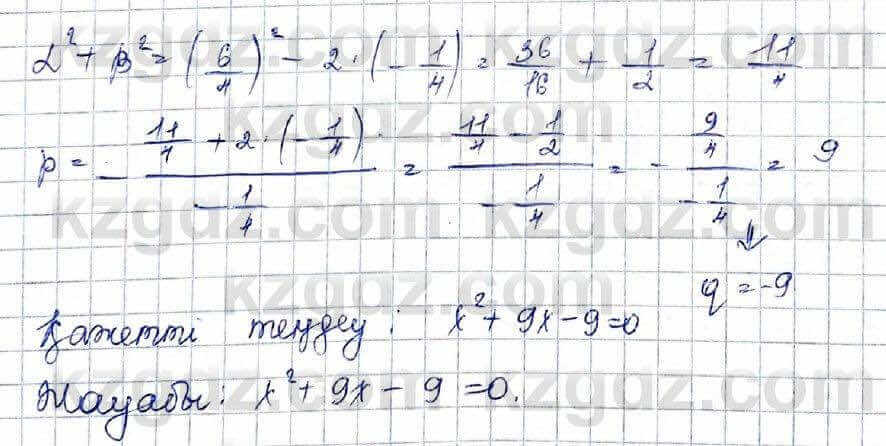 α² + β² = (6/4)² - 2·(-1/4) = 36/16 + 1/2 = 11/4
p = - (11/4 + 2·(-1/4)) / (-1/4) = (11/4 - 1/2) / (-1/4) = - (9/4) / (-1/4) = 9
⇓
q = -9
Қажетті теңдеу: x² + 9x - 9 = 0
Жауабы: x² + 9x - 9 = 0.
kzgdz.com kzgdz.com
kzgdz.com
kzgdz.com kzgdz.com
kzgdz.com
kzgdz.com kzgdz.com